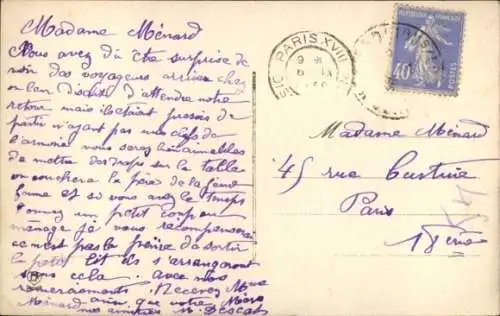 Madame Ménard
Vous avez dû être surprise de
voir des voyageurs arriver chez
on leur disait d'attendre notre
retour mais ils étaient pressés de
partir n'ayant pas mes clefs de
l'armoire vous serez bien aimables
de mettre des draps sur la table
on couchera la
et si vous avez le temps
donnez un petit coup au
ménage je vous récompenserai
ce n'est pas la peine de sortir
le petit lit ils s'arrangeront
sans cela. avec nos
remerciements. Recevez Mme
Ménard ainsi que votre
nos amitiés M. Descat
PARIS XVIII
REPUBLIQUE FRANÇAISE
40
POSTES
Madame Ménard
45 rue Custine
Paris
18ème